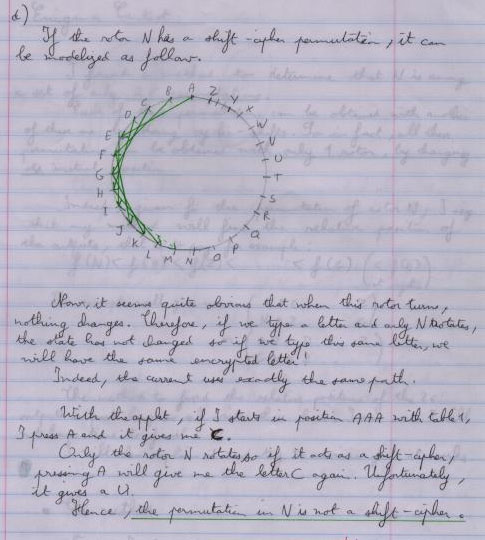 d)
If the rotor N has a shift-cipher permutation, it can
be modelized as follow.
A
B
C
D
E
F
G
H
I
J
K
L
M
N
O
P
Q
R
S
T
U
V
W
X
Y
Z
Now, it seems quite obvious that when this rotor turns,
nothing changes. Therefore, if we type a letter and only N rotates,
the state has not changed so if we type this same letter, we
will have the same encrypted letter!
Indeed, the current uses exactly the same path.
With the applet, if I starts in position AAA with table 1,
I press A and it gives me C.
Only the rotor N rotates so if it acts as a shift-cipher,
pressing A will give me the letter C again. Unfortunately,
it gives a U.
Hence, the permutation in N is not a shift-cipher.